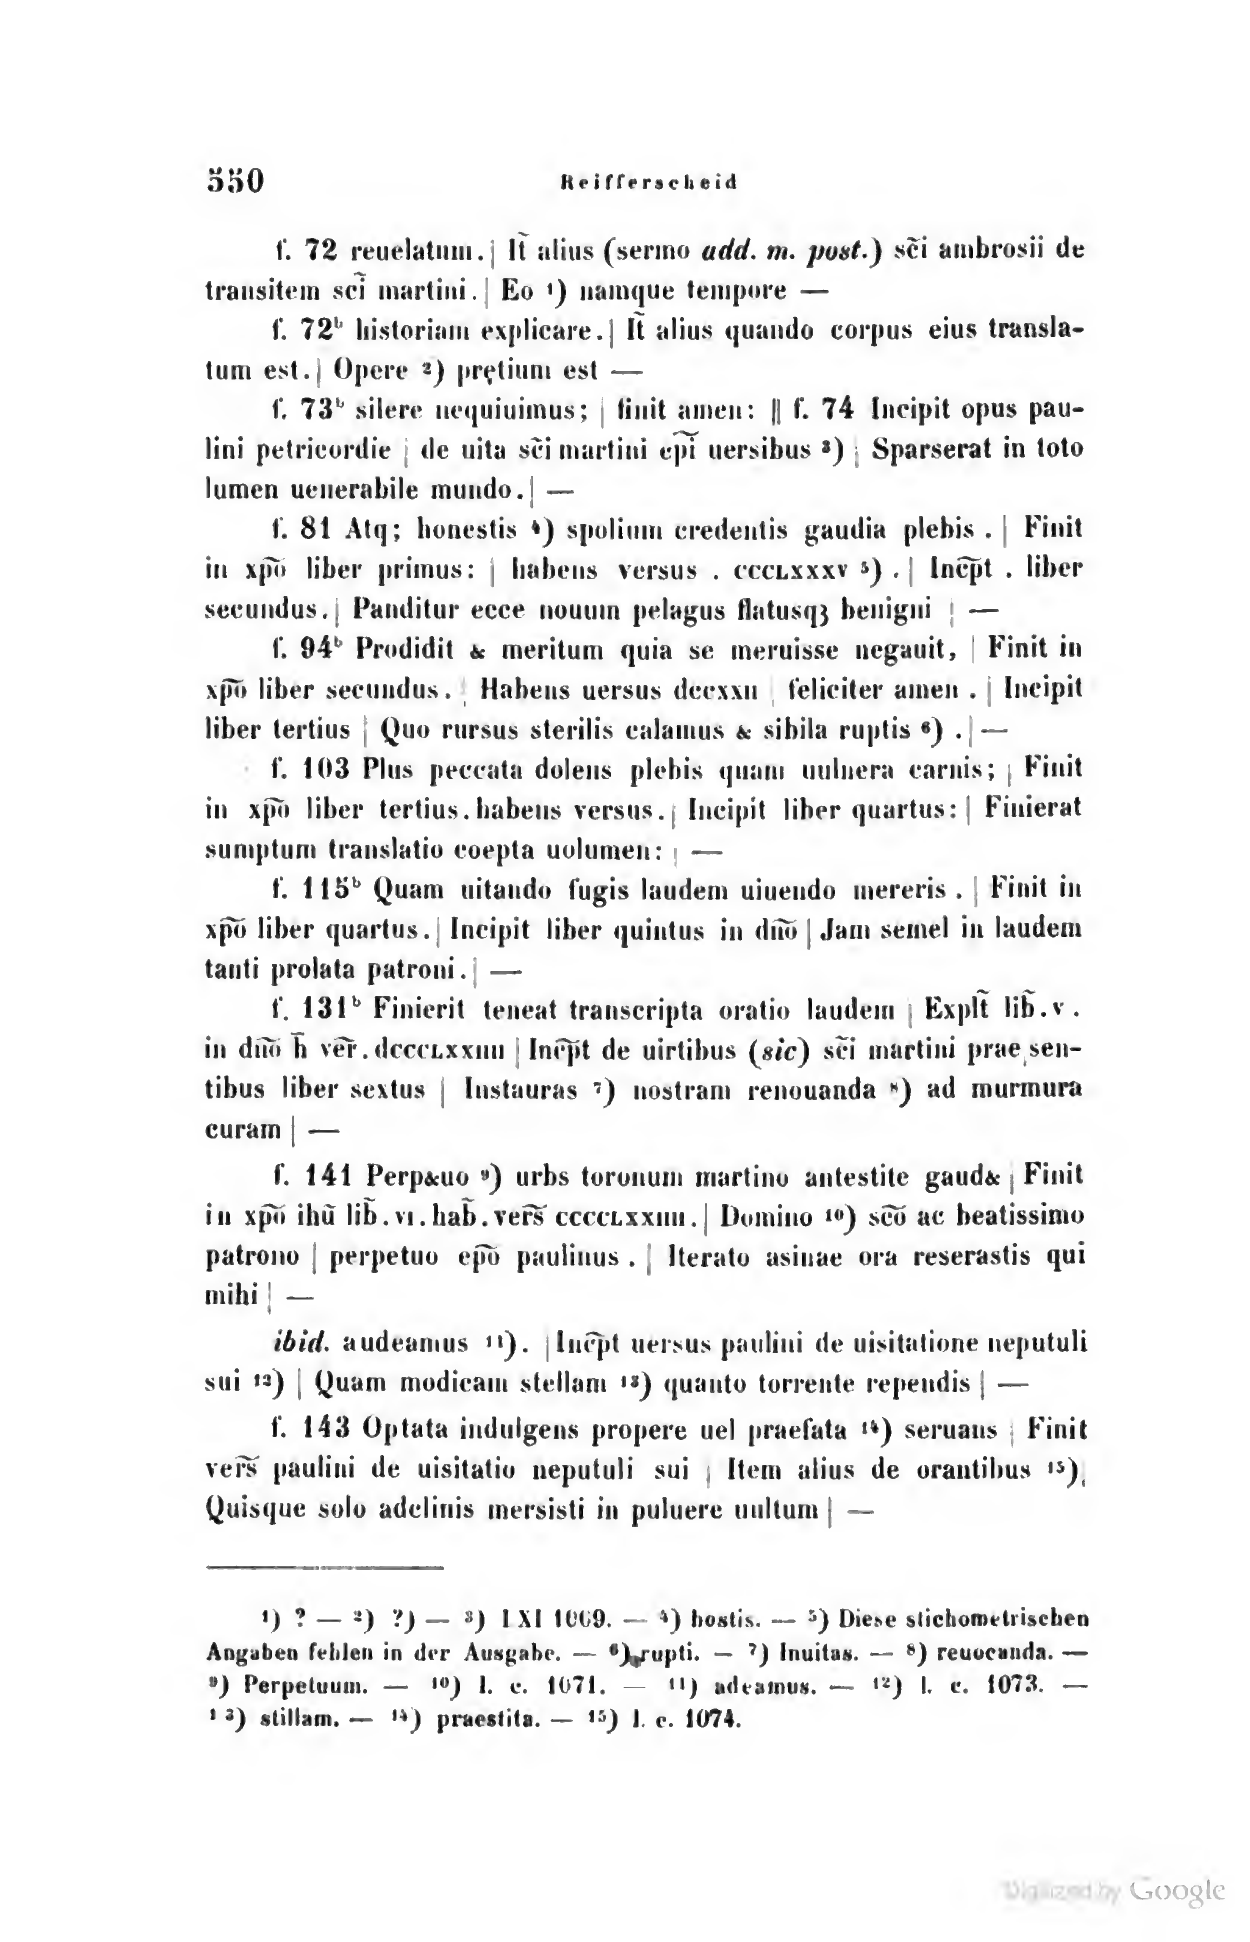 550 Reifferscheid
f. 72 reuelatum. | It̃ alius (sermo add. m. post.) sc̃i ambrosii de
transitem sc̃i martini. | Eo ¹) namque tempore —
f. 72ᵇ historiam explicare. | It̃ alius quando corpus eius transla-
tum est. | Opere ²) prętium est —
f. 73ᵇ silere nequiuimus; | finit amen: || f. 74 Incipit opus pau-
lini petricordie | de uita sc̃i martini ep̃i uersibus ³) | Sparserat in toto
lumen uenerabile mundo. | —
f. 81 Atq; honestis ⁴) spolium credentis gaudia plebis . | Finit
in xp̃o liber primus: | habens versus . ccclxxxv ⁵) . | Inc̃pt . liber
secundus. | Panditur ecce nouum pelagus flatusqꝫ benigni | —
f. 94ᵇ Prodidit & meritum quia se meruisse negauit, | Finit in
xp̃o liber secundus. | Habens uersus dccxxii | feliciter amen . | Incipit
liber tertius | Quo rursus sterilis calamus & sibila ruptis ⁶) . | —
f. 103 Plus peccata dolens plebis quam uulnera carnis; | Finit
in xp̃o liber tertius. habens versus. | Incipit liber quartus: | Finierat
sumptum translatio coepta uolumen: | —
f. 115ᵇ Quam uitando fugis laudem uiuendo mereris . | Finit in
xp̃o liber quartus. | Incipit liber quintus in dño | Jam semel in laudem
tanti prolata patroni. | —
f. 131ᵇ Finierit teneat transcripta oratio laudem | Explt̃ lib̃. v .
in dño h̃ ver̃. dccclxxiiii | Inc̃pt de uirtibus (sic) sc̃i martini prae sen-
tibus liber sextus | Instauras ⁷) nostram renouanda ⁸) ad murmura
curam | —
f. 141 Perp&uo ⁹) urbs toronum martino antestite gaud& | Finit
in xp̃o ihũ lib̃. vi. hab̃. ver̃s cccclxxiiii. | Domino ¹⁰) sc̃o ac beatissimo
patrono | perpetuo ep̃o paulinus . | Iterato asinae ora reserastis qui
mihi | —
ibid. audeamus ¹¹). | Inc̃pt uersus paulini de uisitatione neputuli
sui ¹²) | Quam modicam stellam ¹³) quanto torrente rependis | —
f. 143 Optata indulgens propere uel praefata ¹⁴) seruans | Finit
ver̃s paulini de uisitatio neputuli sui | Item alius de orantibus ¹⁵) |
Quisque solo adclinis mersisti in puluere uultum | —
¹) ? — ²) ?) — ³) LXI 1009. — ⁴) hostis. — ⁵) Diese stichometrischen
Angaben fehlen in der Ausgabe. — ⁶) rupti. — ⁷) Inuitas. — ⁸) reuocanda. —
⁹) Perpetuum. — ¹⁰) l. c. 1071. — ¹¹) adeamus. — ¹²) l. c. 1073. —
¹³) stillam. — ¹⁴) praestita. — ¹⁵) l. c. 1074.
Digitized by Google